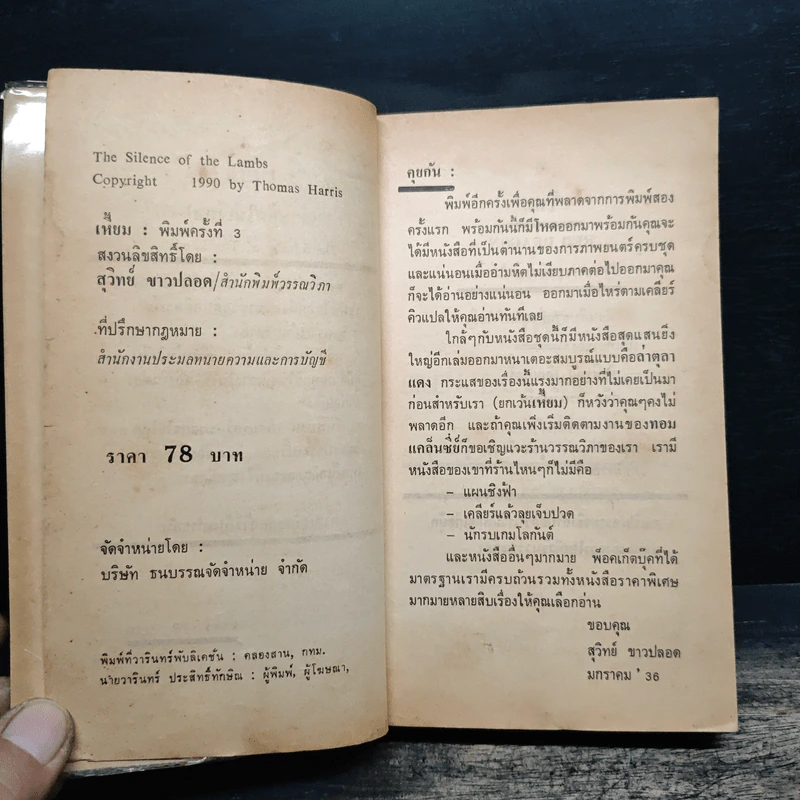 The Silence of the Lambs
Copyright 1990 by Thomas Harris
เหี้ยม : พิมพ์ครั้งที่ 3
สงวนลิขสิทธิ์โดย :
สุวิทย์ ขาวปลอด/สำนักพิมพ์วรรณวิภา
ที่ปรึกษากฎหมาย :
สำนักงานประมลทนายความและการบัญชี
ราคา 78 บาท
จัดจำหน่ายโดย :
บริษัท ธนบรรณจัดจำหน่าย จำกัด
พิมพ์ที่วารินทร์พับลิเคชั่น : คลองสาน, กทม.
นายวารินทร์ ประสิทธิ์ทักษิณ : ผู้พิมพ์, ผู้โฆษณา,
คุยกัน :
พิมพ์อีกครั้งเพื่อคุณที่พลาดจากการพิมพ์สอง
ครั้งแรก พร้อมกันนี้ก็มีโหดออกมาพร้อมกันคุณจะ
ได้มีหนังสือที่เป็นตำนานของการภาพยนตร์ครบชุด
และแน่นอนเมื่ออำมหิตไม่เงียบภาคต่อไปออกมาคุณ
ก็จะได้อ่านอย่างแน่นอน ออกมาเมื่อไหร่ตามเคลียร์
คิวแปลให้คุณอ่านทันทีเลย
ใกล้ๆกับหนังสือชุดนี้ก็มีหนังสือสุดแสนยิ่ง
ใหญ่อีกเล่มออกมาหนาเตอะสมบูรณ์แบบคือล่าตุลา
แดง กระแสของเรื่องนี้แรงมากอย่างที่ไม่เคยเป็นมา
ก่อนสำหรับเรา (ยกเว้นเหี้ยม) ก็หวังว่าคุณๆคงไม่
พลาดอีก และถ้าคุณเพิ่งเริ่มติดตามงานของทอม
แคล็นซี่ย์ก็ขอเชิญแวะร้านวรรณวิภาของเรา เรามี
หนังสือของเขาที่ร้านไหนๆก็ไม่มีคือ
– แผนชิงฟ้า
– เคลียร์แล้วลุยเจ็บปวด
– นักรบเกมโลกันต์
และหนังสืออื่นๆมากมาย พ็อคเก็ตบุ๊คที่ได้
มาตรฐานเรามีครบถ้วนรวมทั้งหนังสือราคาพิเศษ
มากมายหลายสิบเรื่องให้คุณเลือกอ่าน
ขอบคุณ
สุวิทย์ ขาวปลอด
มกราคม ' 36